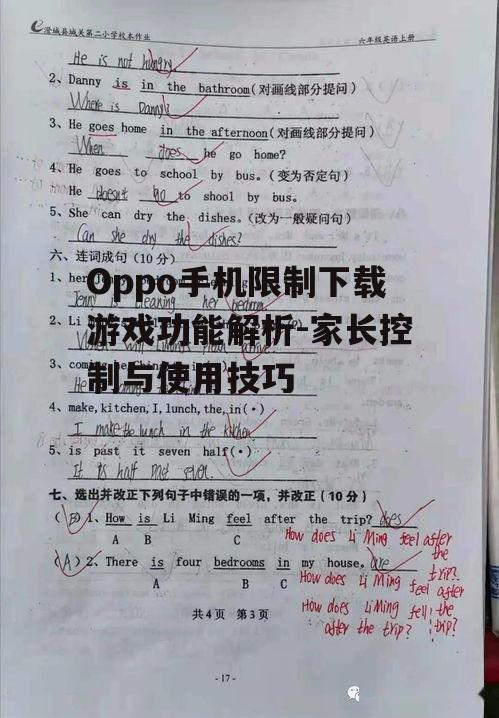 澄城县城关第二小学校本作业 六年级英语上册
He is not hungry
2、Danny is in the bathroom(对画线部分提问)
Where is Danny?
3、He goes home in the afternoon(对画线部分提问)
When does he go home?
4、He goes to school by bus.(变为否定句)
He doesn't go to shool by bus.
5、She can dry the dishes.(改为一般疑问句)
Can she dry the dishes?
六、连词成句(10分)
1、her
Oppo手机限制下载
Jenny is cleaning her bedroom.
2、Li
游戏功能解析-家长控
3、com
制与使用技巧
4、make,kitchen,I,lunch,the,in(•)
I make the lunch in the kitchen
5、is past it seven half(•)
It is half past seven.
七、选出并改正下列句子中错误的一项,并改正(10分)
(B)1、How is Li Ming feel after the trip? does
A B C
How does Li Ming feel after the trip?
(A)2、There is four bedrooms in my house. are
A B C
How does Li Ming feel after the trip?
How does Li Ming fell after the trip?
共4页 第3页
-17-